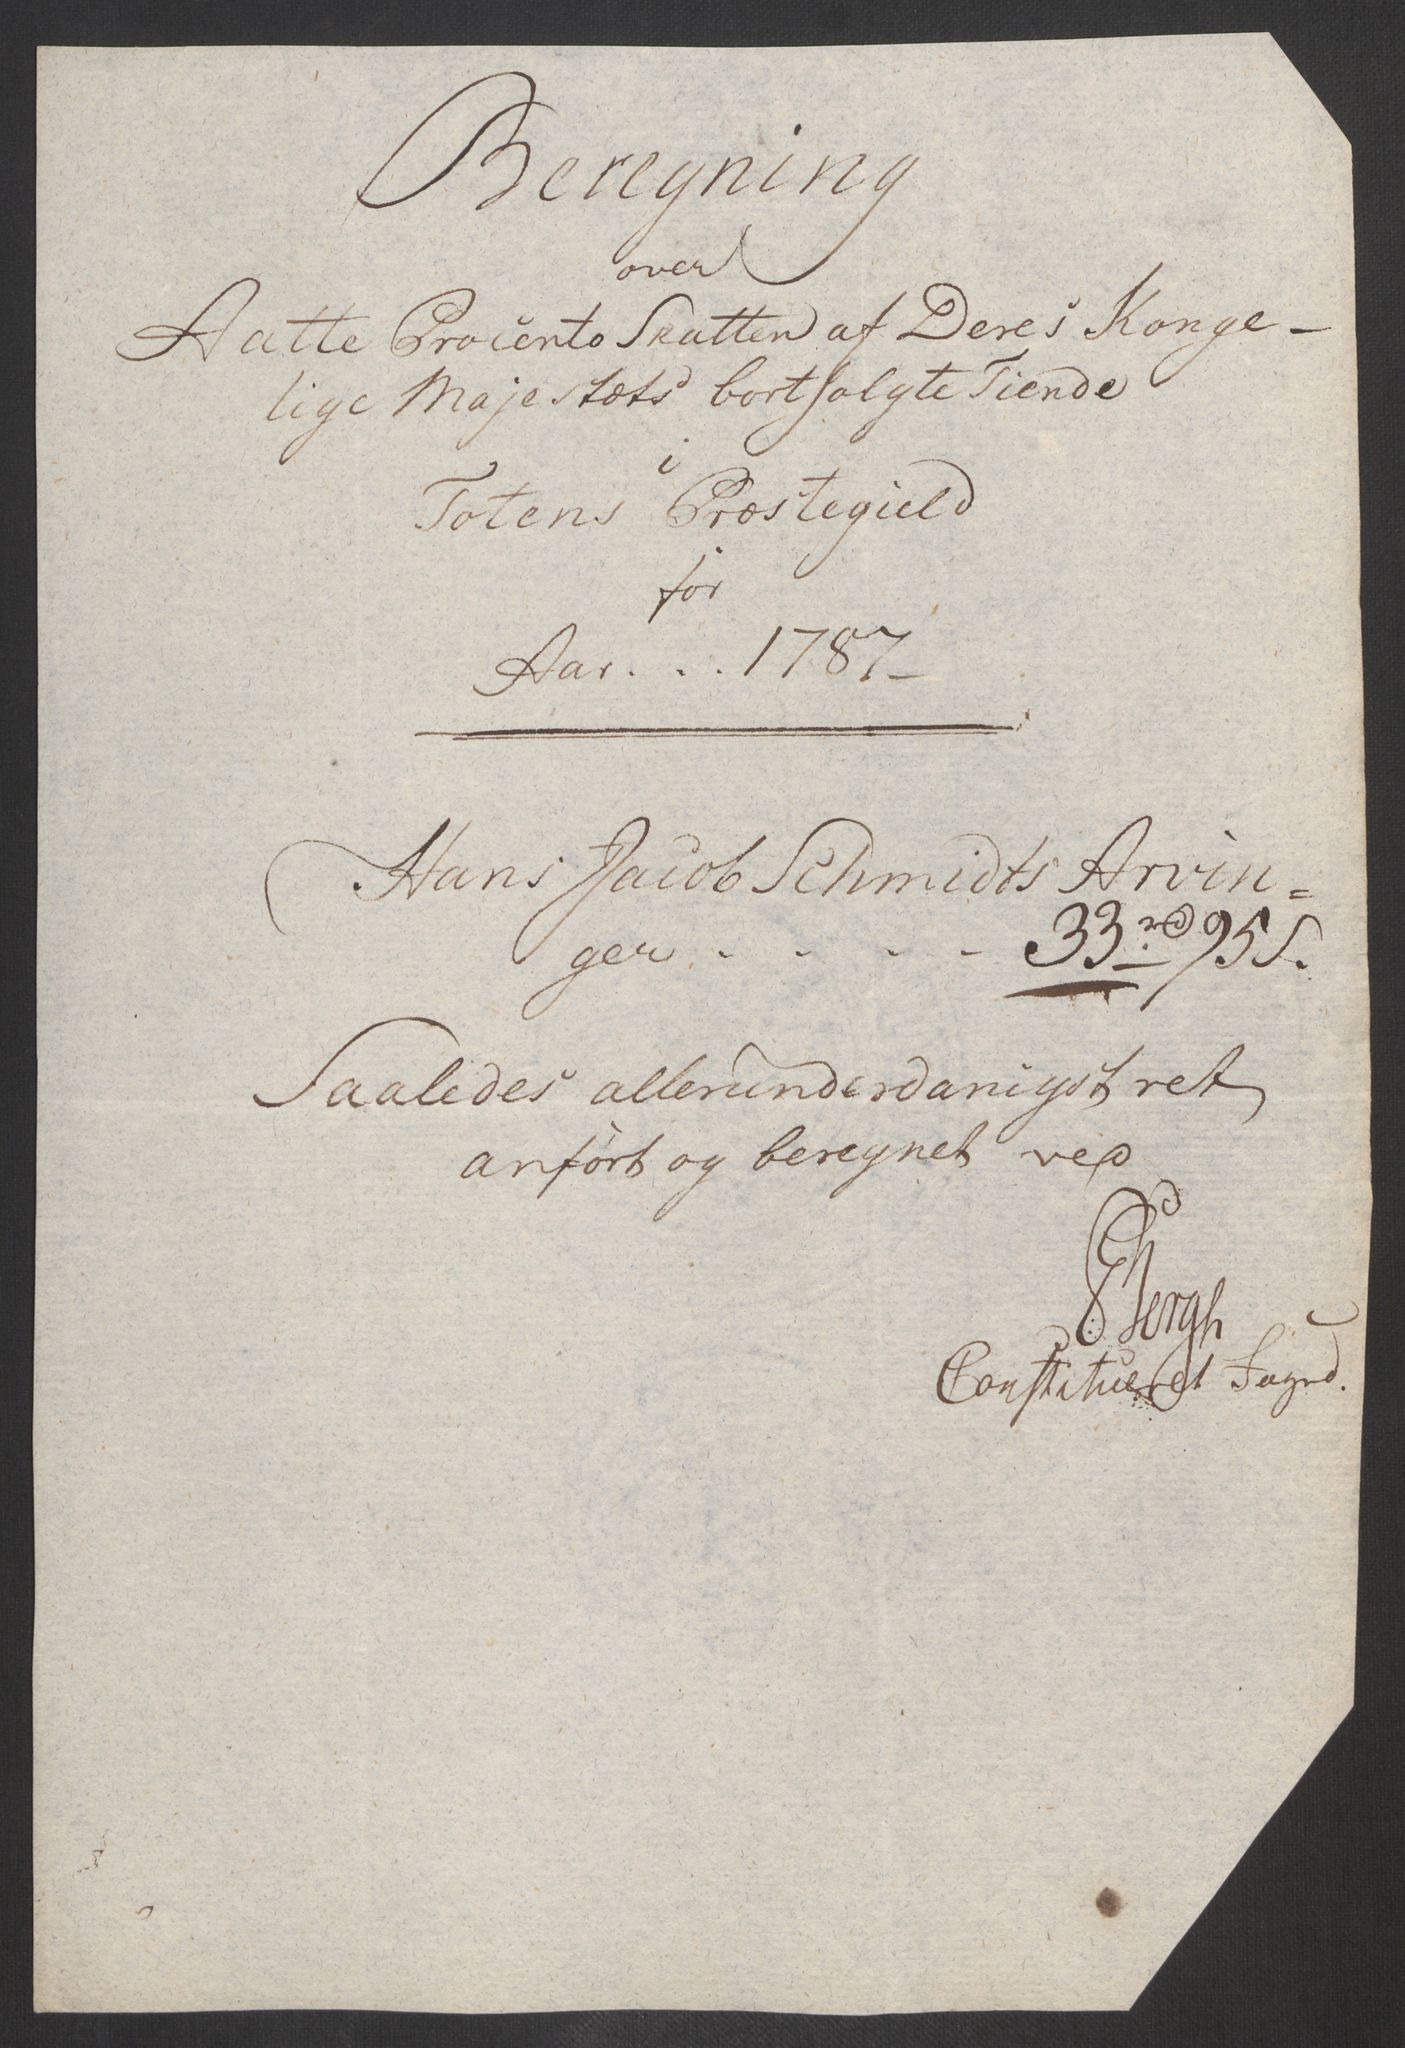 Beregning
over
Aatte Procento Skatten af Deres Konge-
lige Majestæts bortsolgte Tiende
i
Totens Præstegield
for
Aar . . . 1787
Hans Jacob Schmidts Arvin=
ger . . . . 33 rd 95 s.
Saaledes allerunderdanigst ret
anført og beregnet ved
Bergh
Constitueret Sogned.